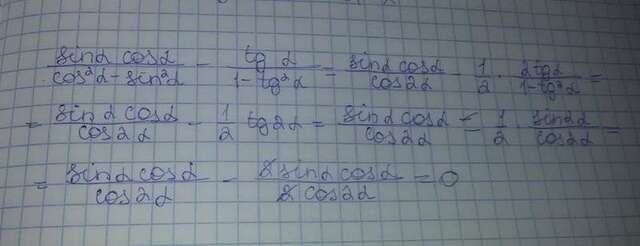 sinα cosα / cos²α - sin²α - tg α / 1 - tg²α = sinα cosα / cos2α - 1/2 · 2tgα / 1 - tg²α =
= sinα cosα / cos2α - 1/2 tg2α = sinα cosα / cos2α - 1/2 · sin2α / cos2α =
= sinα cosα / cos2α - 2sinα cosα / 2cos2α = 0